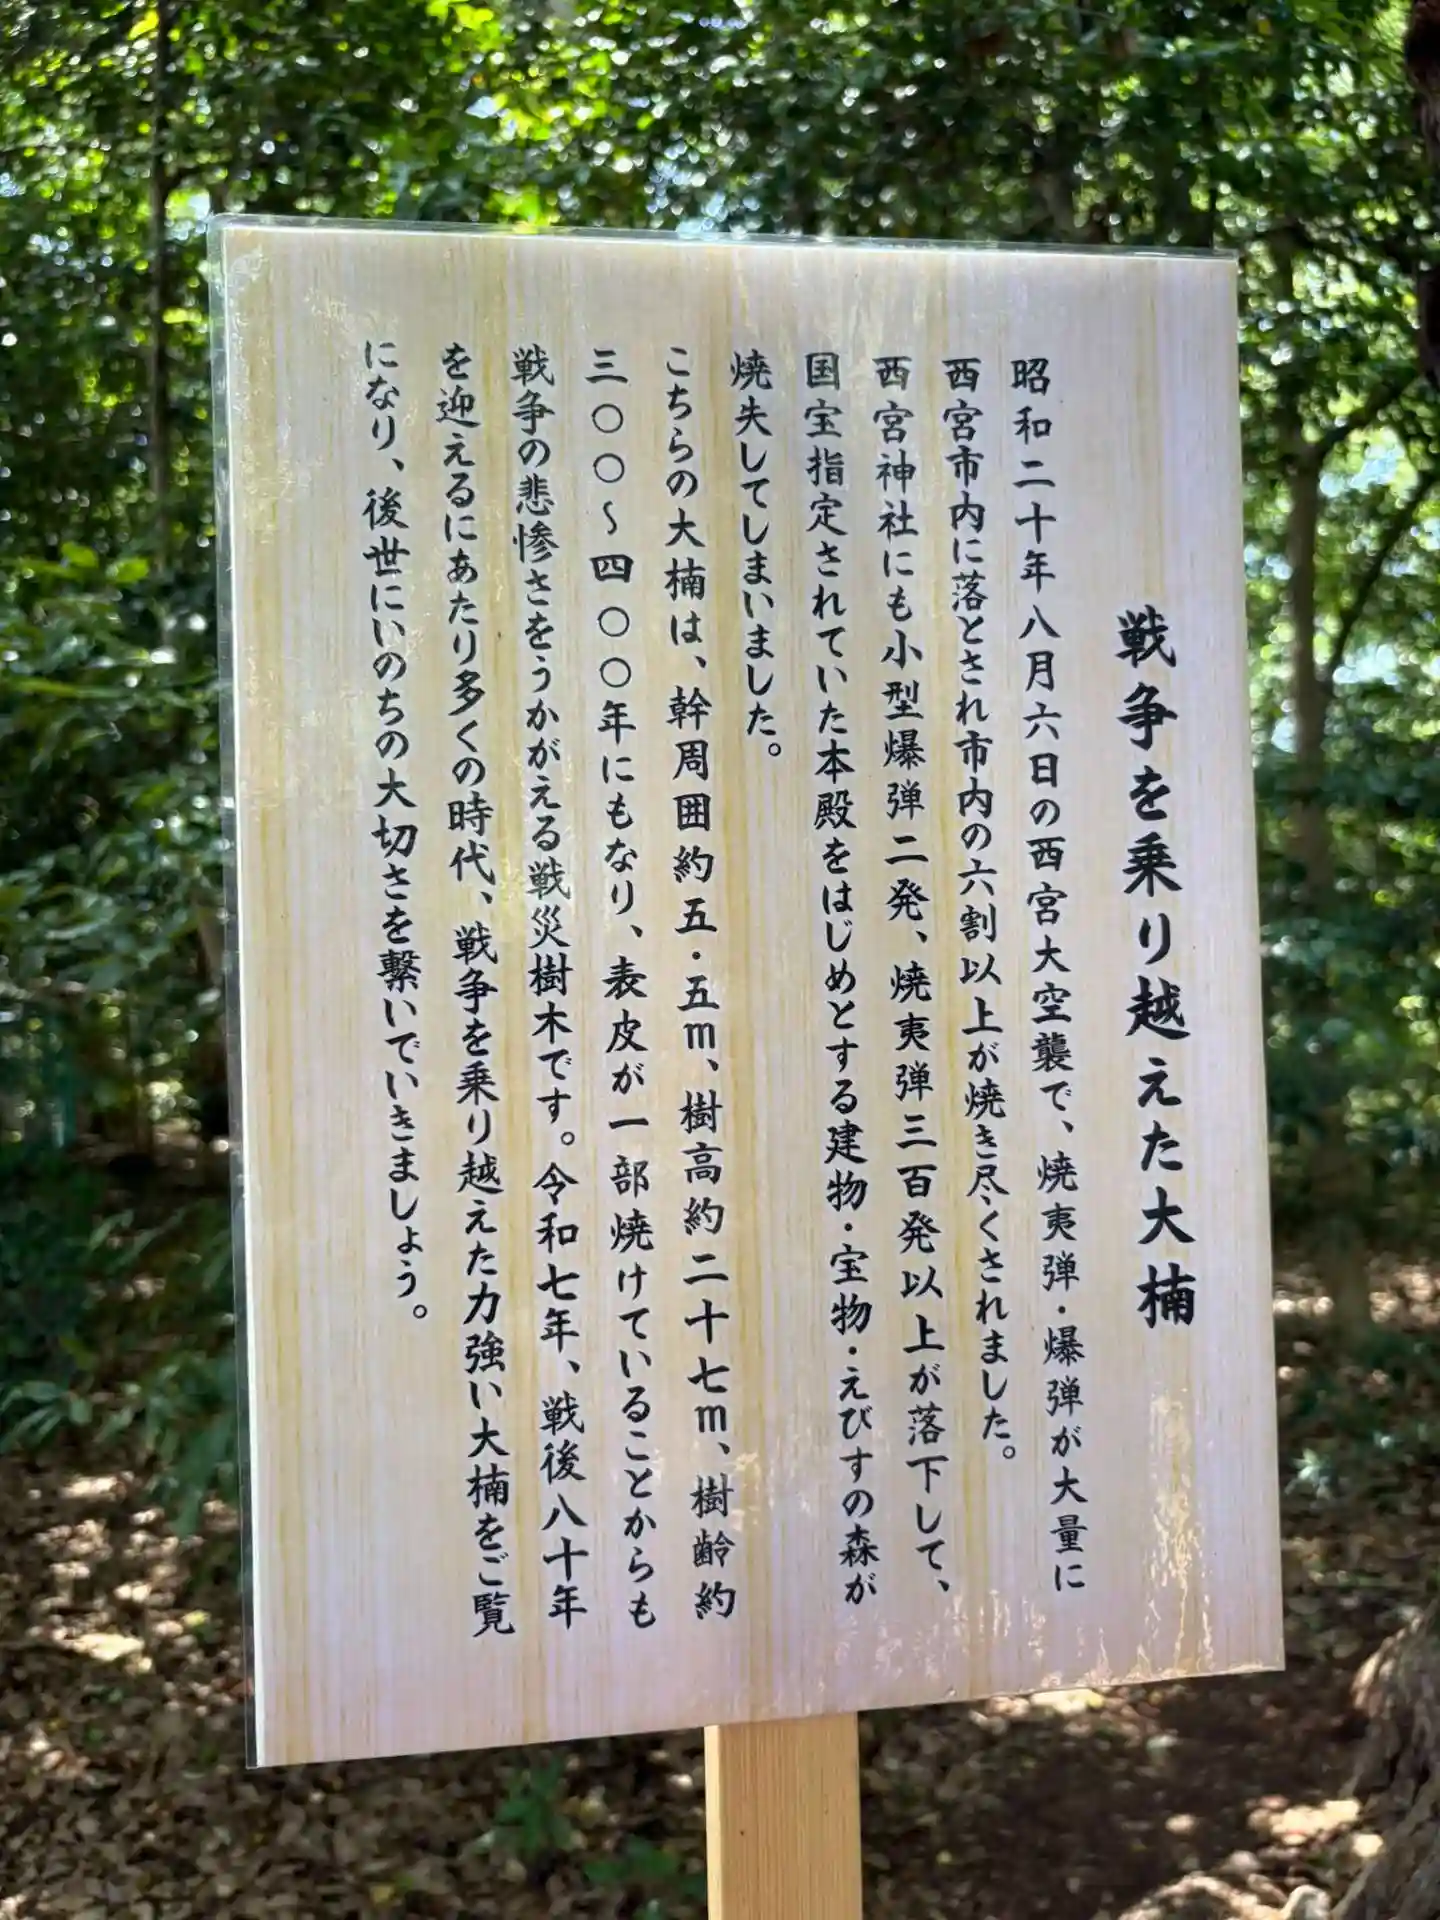 戦争を乗り越えた大楠
昭和二十年八月六日の西宮大空襲で、焼夷弾・爆弾が大量に
西宮市内に落とされ市内の六割以上が焼き尽くされました。
西宮神社にも小型爆弾二発、焼夷弾三百発以上が落下して、
国宝指定されていた本殿をはじめとする建物・宝物・えびすの森が
焼失してしまいました。
こちらの大楠は、幹周囲約五・五m、樹高約二十七m、樹齢約
三〇〇～四〇〇年にもなり、表皮が一部焼けていることからも
戦争の悲惨さをうかがえる戦災樹木です。令和七年、戦後八十年
を迎えるにあたり多くの時代、戦争を乗り越えた力強い大楠をご覧
になり、後世にいのちの大切さを繋いでいきましょう。